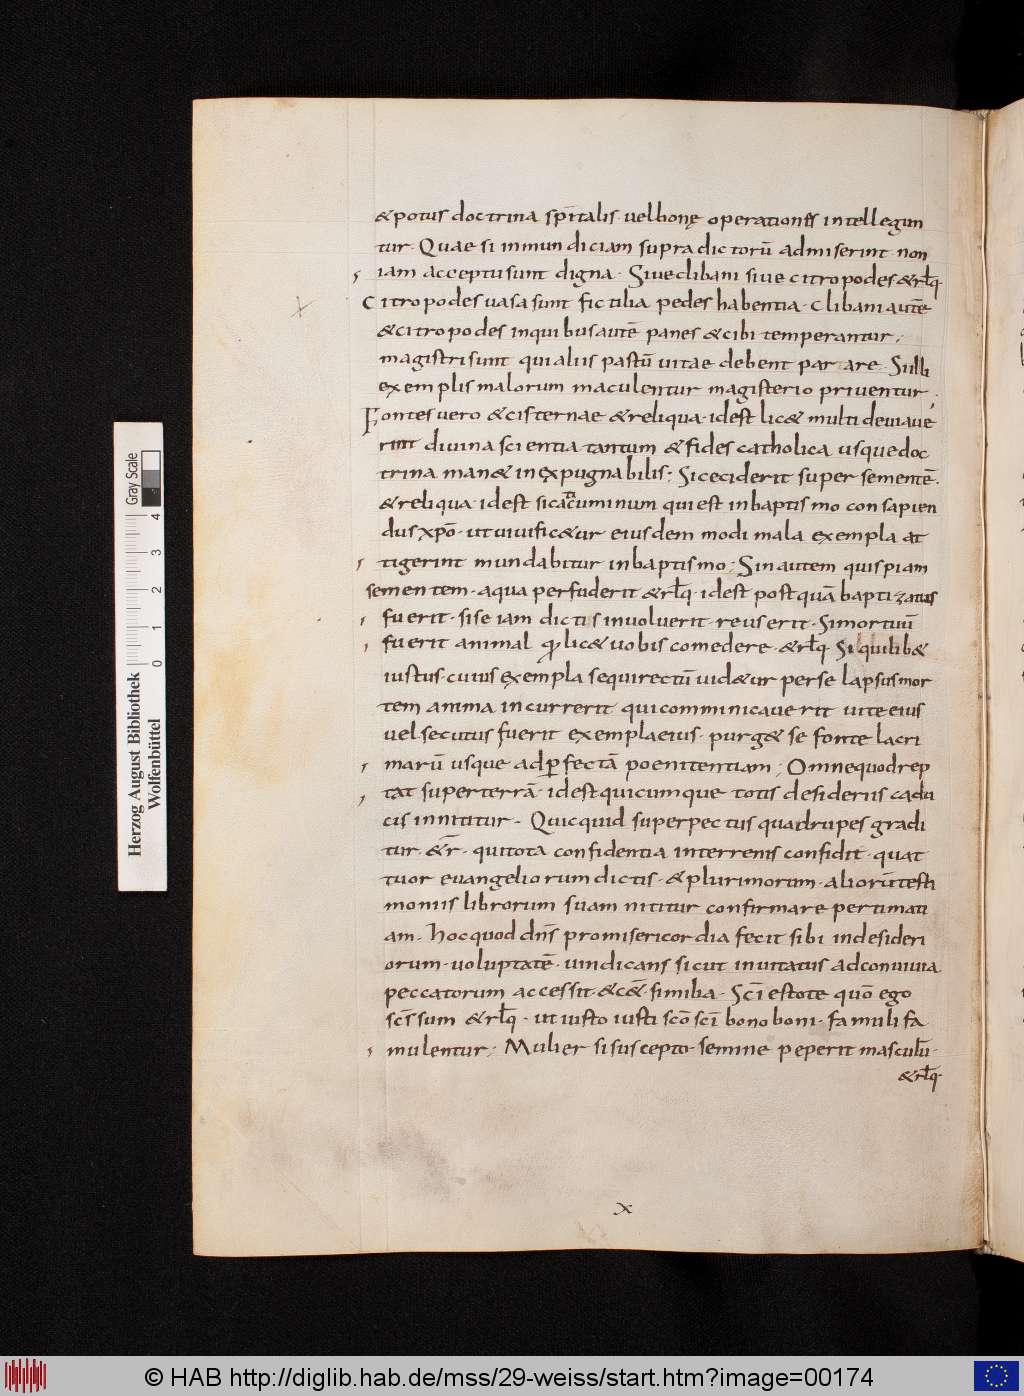 &potus doctrina sp̄italis· uel bonę operationis intellegun
tur· Quae si inmundiciam supra dictorū admiserint non
iam accepta sunt digna· Siue clibani siue citropodes &rl̄q·
Citropodes uasa sunt fictilia pedes habentia· Clibani autē
&citropodes in quibus autē panes &cibi temperantur;
magistri sunt qui aliis pastū uitae debent parare· Si illi
exemplis malorum maculentur magisterio priuentur·
Fontes uero &cisternae &reliqua· id est lic& multi deuiaue
rint diuina scientia tantum &fides catholica usque doc
trina man& inexpugnabilis; Si ceciderit super sementē·
&reliqua· id est si catecuminum qui est in baptismo consapien
dus xp̄o· ut uiuific&ur eiusdem modi mala exempla at
tigerint mundabitur in baptismo; Sin autem quispiam
sementem· aqua perfuderit &rl̄q· id est postquā baptizatus
fuerit· si se iam dictis inuoluerit· reus erit· Si mortuū
fuerit animal ꝙ lic& uobis comedere· &rl̄q· Si quilib&
iustus· cuius exempla sequi rectū uid&ur per se lapsus mor
tem anima incurrerit qui comminicauerit uite eius
uel secutus fuerit exempla eius· purg& se fonte lacri
marū usque ad ꝑfectā poenitentiam; Omne quod rep
tat super terrā· id est quicumque totis desideriis cadu
cis innititur· Quicquid super pectus quadrupes gradi
tur· &r̄· qui tota confidentia in terrenis confidit· quat
tuor euangeliorum dictis· &plurimorum· aliorū testi
moniis librorum suam nititur confirmare pertinati
am· hoc quod dn̄s pro misericordia fecit sibi in desideri
orum· uoluptatē· uindicans sicut inuitatus ad conuiuia
peccatorum accessit· &cę̄· similia· Sc̄i estote quō ego
sc̄s sum &rl̄q· ut iusto iusti sc̄o sc̄i bono boni· famuli fa
mulentur; Mulier si suscepto· semine peperit masculū·
&rl̄q·
x
Herzog August Bibliothek
Wolfenbüttel
0 1 2 3 4
Gray Scale
© HAB http://diglib.hab.de/mss/29-weiss/start.htm?image=00174